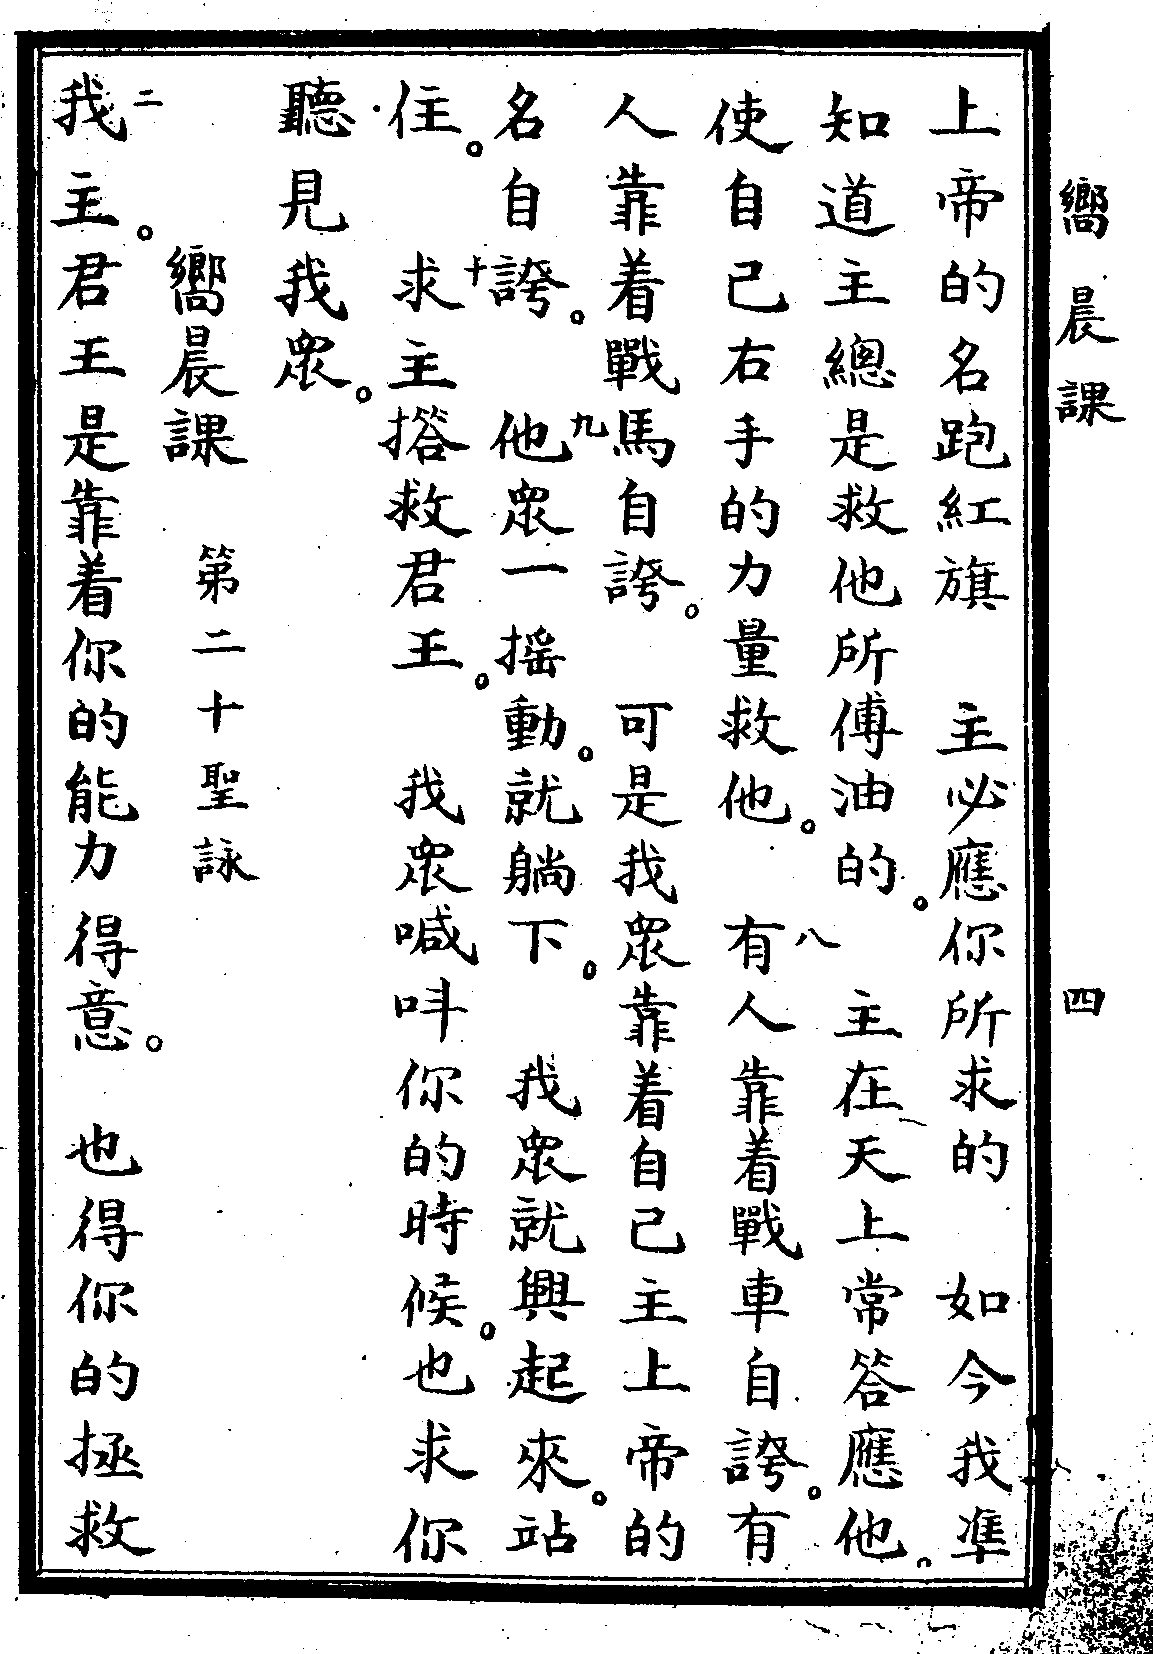 嚮晨課 四
上帝的名跑紅旗 主必應你所求的 如今我準
知道主總是救他所傅油的。 主在天上常答應他。
使自己右手的力量救他。 八有人靠着戰車自誇。有
人靠着戰馬自誇。 可是我衆靠着自己主上帝的
名自誇。 九他衆一搖動。就躺下。 我衆就興起來。站
住。 十求主搭救君王。 我衆喊呌你的時候。也求你
聽見我衆。
嚮晨課 第二十聖詠
二我主。君王是靠着你的能力得意。 也得你的拯救